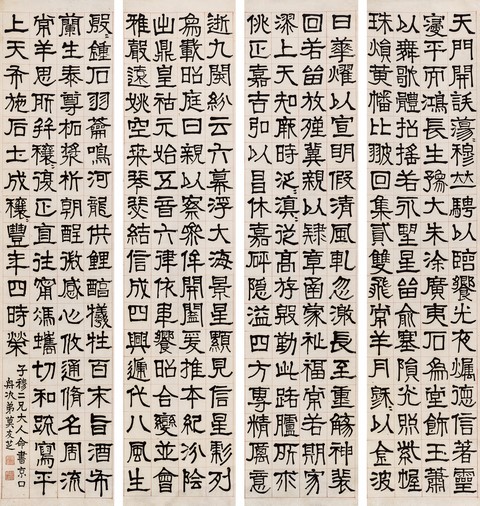 天門開詄蕩穆竝騁以臨饗光夜爥德信著靈
寖平而鴻長生豫大朱涂廣夷石為堂飾玉蕭
以舞歌體招搖若永朢星畱俞塞隕光照紫幄
珠熉黃幡比翄回集貳雙飛常羊月穆以金波
日華燿以宣明假清風軋忽激長至重觴神裴
回若畱放殣冀親以肆章函蒙祉福常若期
漻上天知厥時泛滇從高斿殷勤此路臚所求
佻正嘉吉弘以昌休嘉砰隱溢四方專精厲意
逝九閡紛云六幕浮大海景星顯見信星彪列
象載昭庭日親以察參侔開闔爰推本紀汾陰
出鼎皇祜元始五音六律依韋饗昭雜變並會
雅聲遠姚空桒琴瑟結信成四興遞代八風生
殷鍾石羽籥鳴河龍供鯉醕犧牲百末旨酒布
蘭生泰尊柘漿析朝酲微感心攸通脩名周流
常羊思所幷穰復正直往甯馮蠵切和疏寫平
上天布施后土成穰豐年四時榮
子穆二兄大人命書京口
舟次弟莫友芝